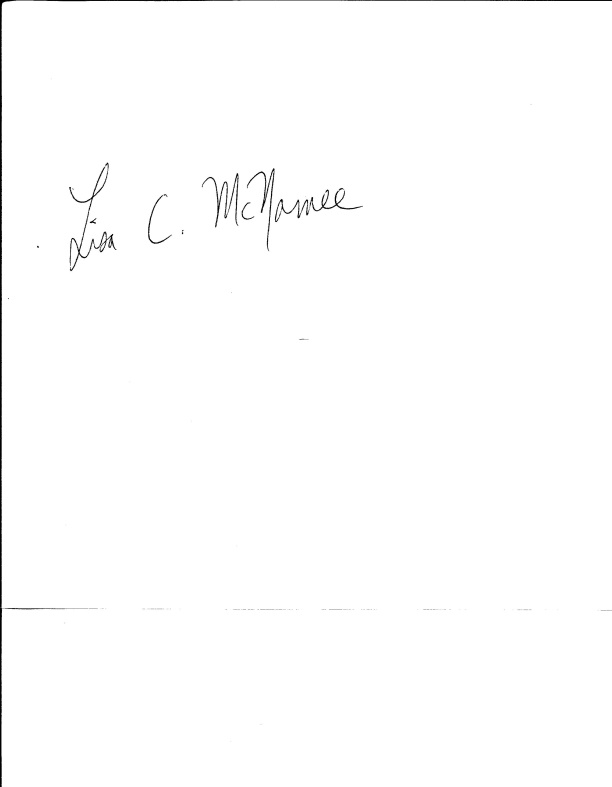 Lisa C. McNamee